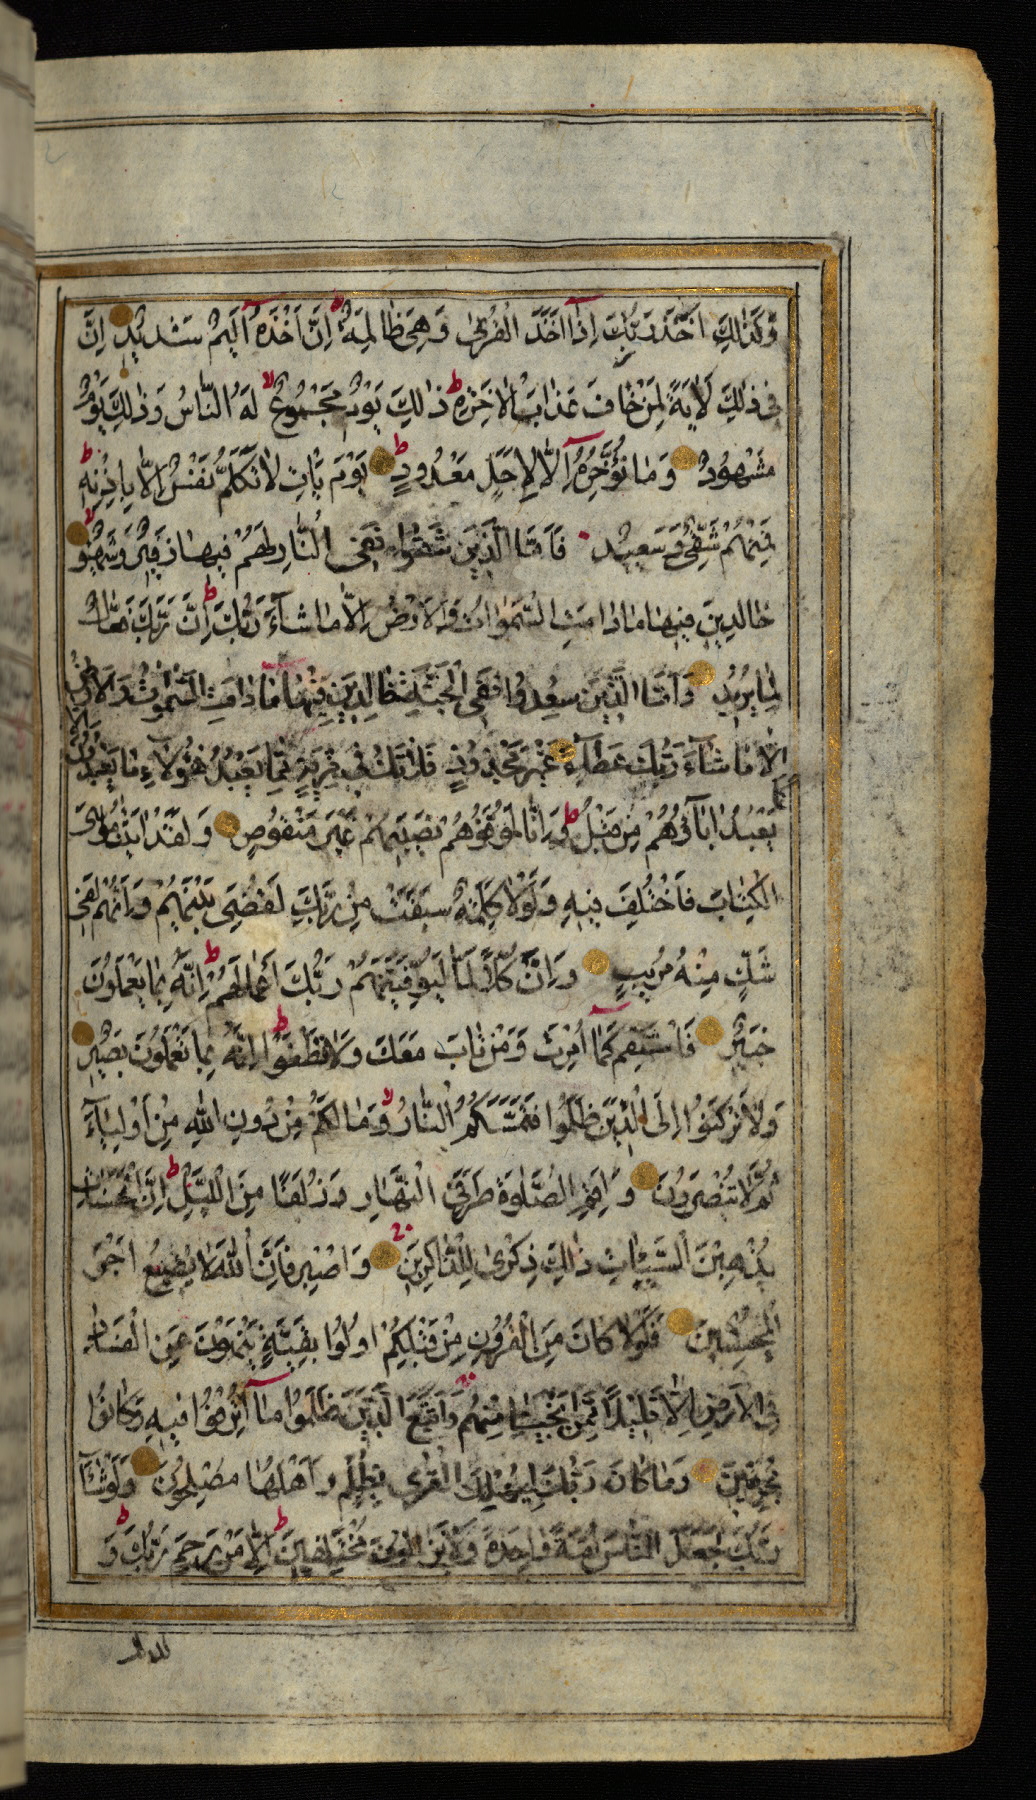 وَكَذٰلِكَ اَخْذُ رَبِّكَ اِذَٓا اَخَذَ الْقُرٰى وَهِىَ ظَالِمَةٌ اِنَّ اَخْذَهُٓ اَلِيمٌ شَدِيدٌ اِنَّ
فِى ذٰلِكَ لَاٰيَةً لِمَنْ خَافَ عَذَابَ الْاٰخِرَةِ ذٰلِكَ يَوْمٌ مَجْمُوعٌ لَهُ النَّاسُ وَذٰلِكَ يَوْمٌ
مَشْهُودٌ وَمَا نُؤَخِّرُهُٓ اِلَّا لِاَجَلٍ مَعْدُودٍ يَوْمَ يَاْتِ لَا تَكَلَّمُ نَفْسٌ اِلَّا بِاِذْنِهِ
فَمِنْهُمْ شَقِىٌّ وَسَعِيدٌ فَاَمَّا الَّذِينَ شَقُوا فَفِى النَّارِ لَهُمْ فِيهَا زَفِيرٌ وَشَهِيقٌ
خَالِدِينَ فِيهَا مَا دَامَتِ السَّمٰوَاتُ وَالْاَرْضُ اِلَّا مَا شَٓاءَ رَبُّكَ اِنَّ رَبَّكَ فَعَّالٌ
لِمَا يُرِيدُ وَاَمَّا الَّذِينَ سُعِدُوا فَفِى الْجَنَّةِ خَالِدِينَ فِيهَا مَا دَامَتِ السَّمٰوَاتُ وَالْاَرْضُ
اِلَّا مَا شَٓاءَ رَبُّكَ عَطَٓاءً غَيْرَ مَجْذُوذٍ فَلَا تَكُ فِى مِرْيَةٍ مِمَّا يَعْبُدُ هٰٓؤُلَٓاءِ مَا يَعْبُدُونَ اِلَّا كَمَا
يَعْبُدُ اٰبَٓاؤُهُمْ مِنْ قَبْلُ وَاِنَّا لَمُوَفُّوهُمْ نَصِيبَهُمْ غَيْرَ مَنْقُوصٍ وَلَقَدْ اٰتَيْنَا مُوسَى
الْكِتَابَ فَاخْتُلِفَ فِيهِ وَلَوْلَا كَلِمَةٌ سَبَقَتْ مِنْ رَبِّكَ لَقُضِىَ بَيْنَهُمْ وَاِنَّهُمْ لَفِى
شَكٍّ مِنْهُ مُرِيبٍ وَاِنَّ كُلًّا لَمَّا لَيُوَفِّيَنَّهُمْ رَبُّكَ اَعْمَالَهُمْ اِنَّهُ بِمَا يَعْمَلُونَ
خَبِيرٌ فَاسْتَقِمْ كَمَٓا اُمِرْتَ وَمَنْ تَابَ مَعَكَ وَلَا تَطْغَوْا اِنَّهُ بِمَا تَعْمَلُونَ بَصِيرٌ
وَلَا تَرْكَنُوا اِلَى الَّذِينَ ظَلَمُوا فَتَمَسَّكُمُ النَّارُ وَمَا لَكُمْ مِنْ دُونِ اللّٰهِ مِنْ اَوْلِيَٓاءَ
ثُمَّ لَا تُنْصَرُونَ وَاَقِمِ الصَّلٰوةَ طَرَفَىِ النَّهَارِ وَزُلَفًا مِنَ اللَّيْلِ اِنَّ الْحَسَنَاتِ
يُذْهِبْنَ السَّيِّئَاتِ ذٰلِكَ ذِكْرٰى لِلذَّاكِرِينَ وَاصْبِرْ فَاِنَّ اللّٰهَ لَا يُضِيعُ اَجْرَ
الْمُحْسِنِينَ فَلَوْلَا كَانَ مِنَ الْقُرُونِ مِنْ قَبْلِكُمْ اُولُوا بَقِيَّةٍ يَنْهَوْنَ عَنِ الْفَسَادِ
فِى الْاَرْضِ اِلَّا قَلِيلًا مِمَّنْ اَنْجَيْنَا مِنْهُمْ وَاتَّبَعَ الَّذِينَ ظَلَمُوا مَٓا اُتْرِفُوا فِيهِ وَكَانُوا
مُجْرِمِينَ وَمَا كَانَ رَبُّكَ لِيُهْلِكَ الْقُرٰى بِظُلْمٍ وَاَهْلُهَا مُصْلِحُونَ وَلَوْ شَٓاءَ
رَبُّكَ لَجَعَلَ النَّاسَ اُمَّةً وَاحِدَةً وَلَا يَزَالُونَ مُخْتَلِفِينَ اِلَّا مَنْ رَحِمَ رَبُّكَ وَ
لذلك